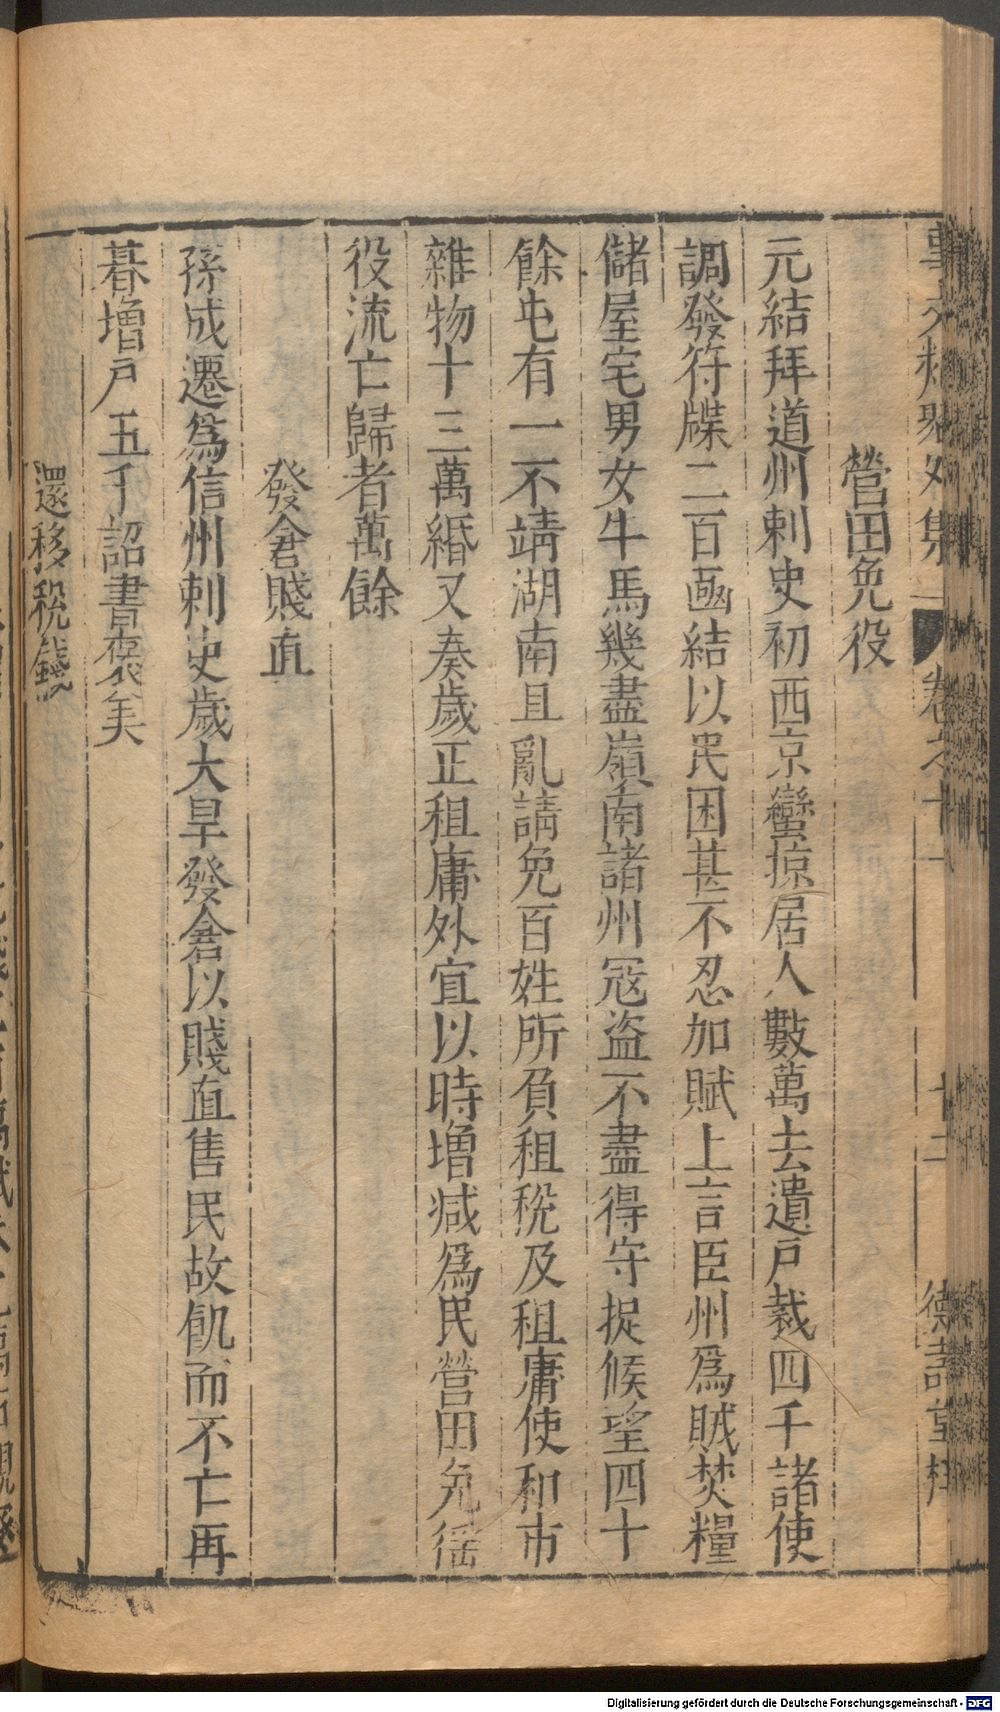 事文類聚外集 卷之十一 十二 德壽堂梓
營田免役
元結拜道州刺史初西京蠻掠居人數萬去遺戸裁四千諸使
調發符牒二百凾結以民困甚不忍加賦上言臣州爲賊焚糧
儲屋宅男女牛馬幾盡嶺南諸州冦盗不盡得守捉候望四十
餘屯有一不靖湖南且亂請免百姓所負租稅及租庸使和市
雜物十三萬緡又奏歲正租庸外宜以時增减爲民營田免徭
役流亡歸者萬餘
發倉賤直
孫成遷爲信州刺史歲大旱發倉以賤直售民故飢而不亡再
朞增戸五千詔書褒美
還移稅錢
Digitalisierung gefördert durch die Deutsche Forschungsgemeinschaft - DFG